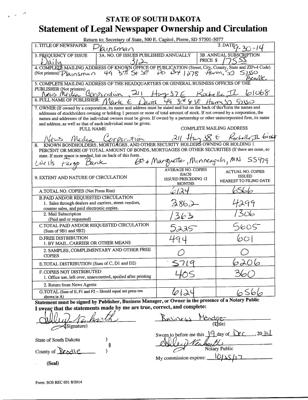 STATE OF SOUTH DAKOTA
Statement of Legal Newspaper Ownership and Circulation
Return to: Secretary of State, 500 E. Capitol, Pierre, SD 57501-5077
1. TITLE OF NEWSPAPER Plainsman
2. DATE 9-30-14
3. FREQUENCY OF ISSUE Daily
3A. NO. OF ISSUES PUBLISHED ANNUALLY 312
3B. ANNUAL SUBSCRIPTION PRICE $
4. COMPLETE MAILING ADDRESS OF KNOWN OFFICE OF PUBLICATION (Street, City, County, State and ZIP+4 Code) (Not printers) Plainsman 49 3rd St SE
5. COMPLETE MAILING ADDRESS OF THE HEADQUARTERS OR GENERAL BUSINESS OFFICES OF THE PUBLISHER (Not printers)
News Media Corporation 211 Hwy 38 E Rochelle IL 61068
6. FULL NAME OF PUBLISHER:
7. OWNER (If owned by a corporation, its name and address must be stated and list on the back of this form the names and addresses of stockholders owning or holding 1 percent or more of total amount of stock. If not owned by a corporation, the names and addresses of the individual owners must be given. If owned by a partnership or other unincorporated firm, its name and address, as well as that of each individual must be given)
FULL NAME
COMPLETE MAILING ADDRESS
News Media Corporation 211 Hwy 38 E Rochelle IL 61068
8. KNOWN BONDHOLDERS, MORTGAGES, AND OTHER SECURITY HOLDERS OWNING OR HOLDING 1 PERCENT OR MORE OF TOTAL AMOUNT OF BONDS, MORTGAGES OR OTHER SECURITIES (If there are none, so state. If more space is needed, list on back of this form.
Wells Fargo Bank 6th & Marquette, Minneapolis, MN 55479
9. EXTENT AND NATURE OF CIRCULATION
AVERAGE NO. COPIES EACH ISSUED PRECEDING 12 MONTHS
ACTUAL NO. COPIES ISSUED NEAREST TO FILING DATE
A. TOTAL NO. COPIES (Net Press Run) 6124 6566
B. PAID AND/OR REQUESTED CIRCULATION
1. Sales through dealers and carriers, street vendors, counter sales, and paid electronic copies. 3862 4299
2. Mail Subscription (Paid and or requested) 1363 1306
C. TOTAL PAID AND/OR REQUESTED CIRCULATION (Sum of 9B1 and 9B2) 5225 5605
D. FREE DISTRIBUTION
1. BY MAIL, CARRIER OR OTHER MEANS 494 601
2. SAMPLES, COMPLIMENTARY AND OTHER FREE COPIES 0 0
E. TOTAL DISTRIBUTION (Sum of C, D1 and D2) 5719 6206
F. COPIES NOT DISTRIBUTED
1. Office use, left over, unaccounted, spoiled after printing 405 360
2. Return from News Agents
G. TOTAL (Sum of E, F1 and F2 - Should equal net press run shown in A) 6124 6566
Statement must be signed by Publisher, Business Manager, or Owner in the presence of a Notary Public
I swear that the statements made by me are true, correct, and complete:
(Signature)
Business Manager
(Title)
State of South Dakota )
County of Beadle )
Sworn to before me this 19 day of Dec
Notary Public
(Seal)
My commission expires:
Form: SOS REC 051 8/2014